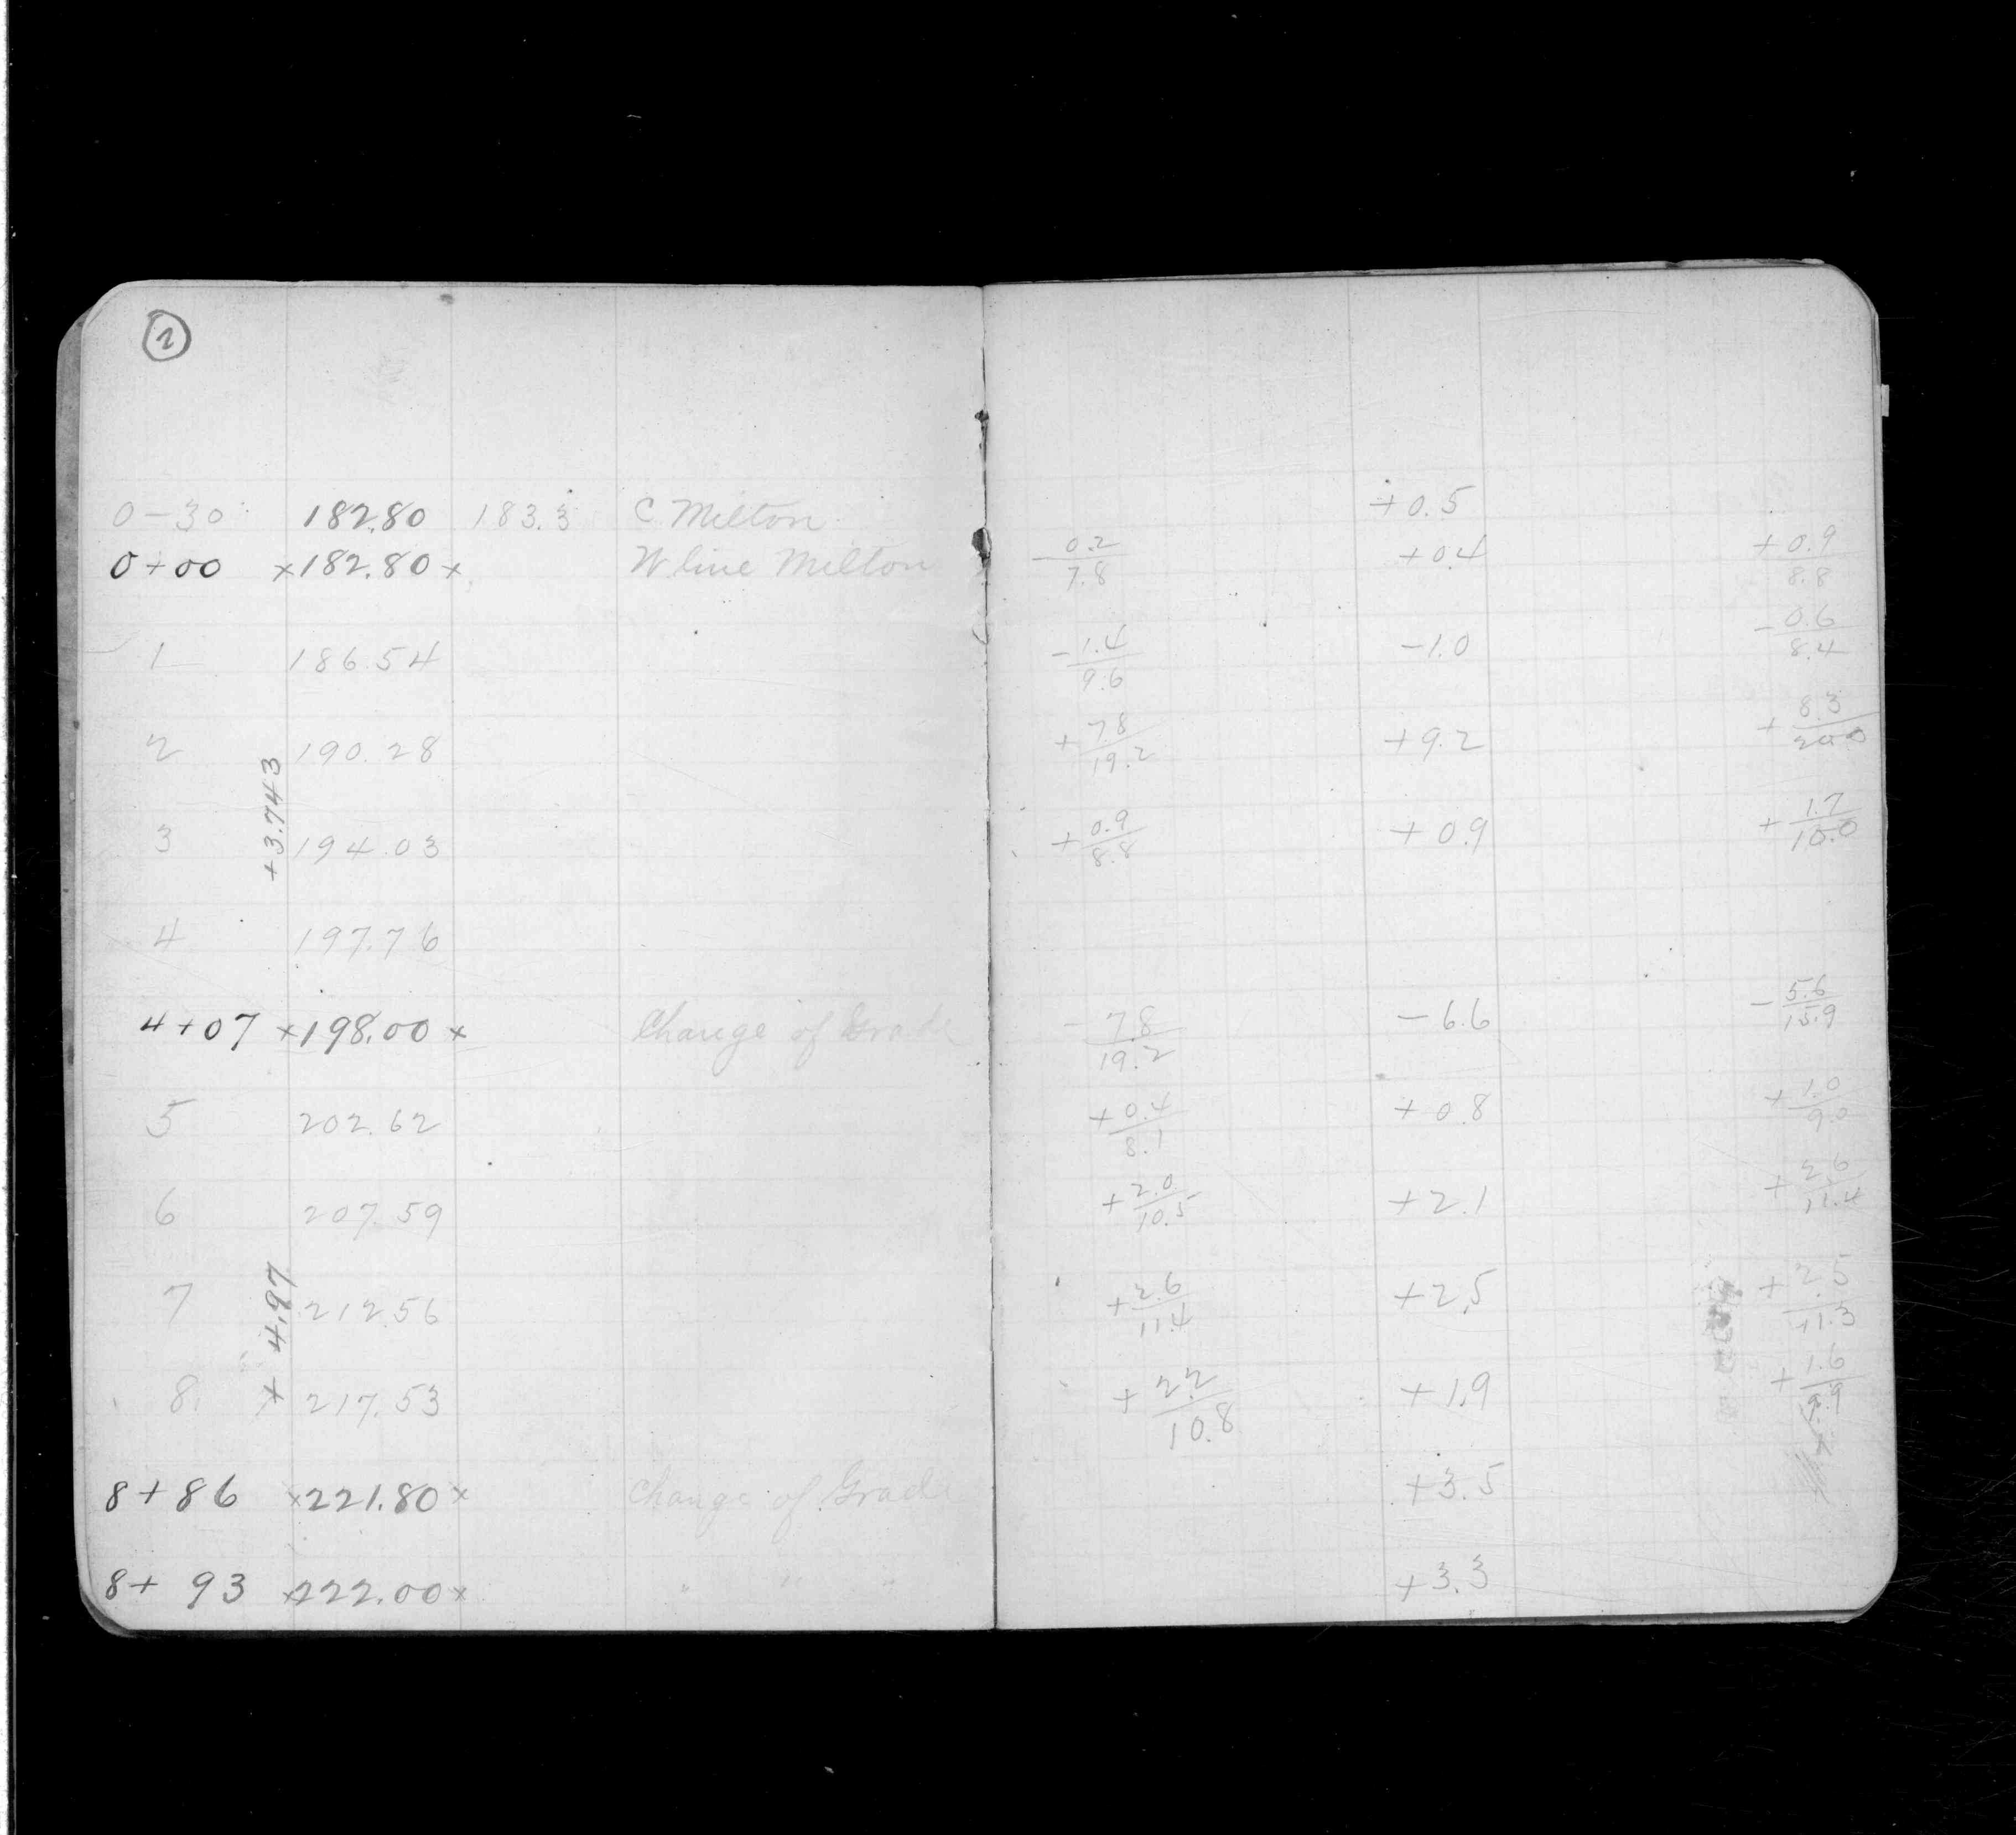 2
0-30 182.80 183.3 C Milton +0.5
0+00 x182.80x W line Milton -0.2/7.8 +0.4 +0.9/8.8
1 186.54 -1.4/9.6 -1.0 -0.6/8.4
2 190.28 +7.8/19.2 +9.2 +8.3/20.0
+3.743
3 194.03 +0.9/8.8 +0.9 +1.7/10.0
4 197.76
4+07 x198.00x Change of Grade -7.8/19.2 -6.6 -5.6/15.9
5 202.62 +0.4/8.1 +0.8 +1.0/9.0
6 207.59 +2.0/10.5 +2.1 +2.6/11.4
+4.97
7 212.56 +2.6/11.4 +2.5 +2.5/11.3
8 217.53 +2.2/10.8 +1.9 +1.6/9.9
8+86 x221.80x Change of Grade +3.5
8+93 x222.00x " " " +3.3